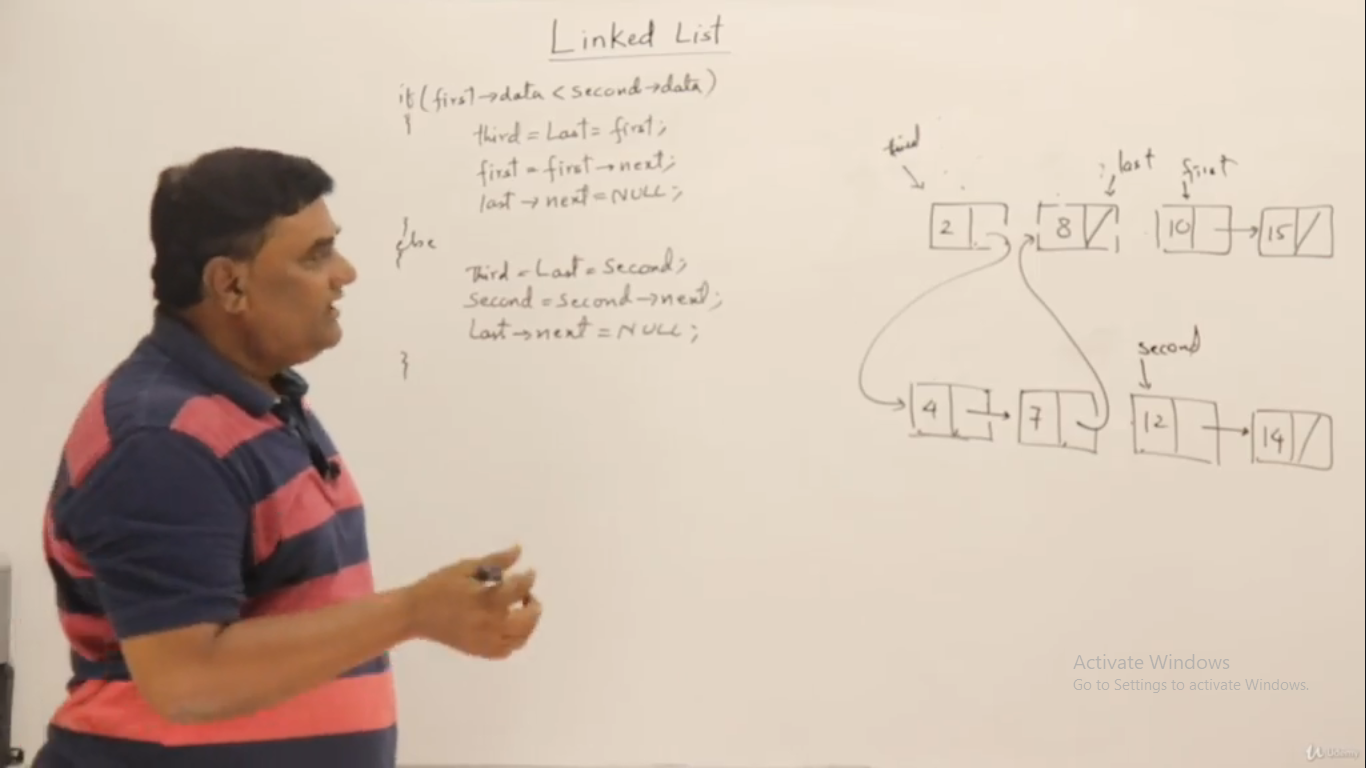 Linked List
if (first→data < second→data)
{
third = Last = first;
first = first→next;
last→next = NULL;
}
else
{
Third = Last = Second;
Second = Second→next;
Last→next = NULL;
}
third
last
first
2
8
10
15
second
4
7
12
14
Activate Windows
Go to Settings to activate Windows.
Udemy